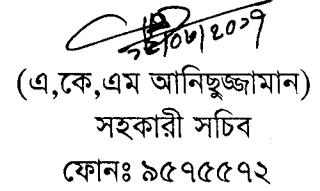 /০৬/২০১৭
(এ,কে,এম আনিছুজ্জামান)
সহকারী সচিব
ফোনঃ ৯৫৭৫৫৭২